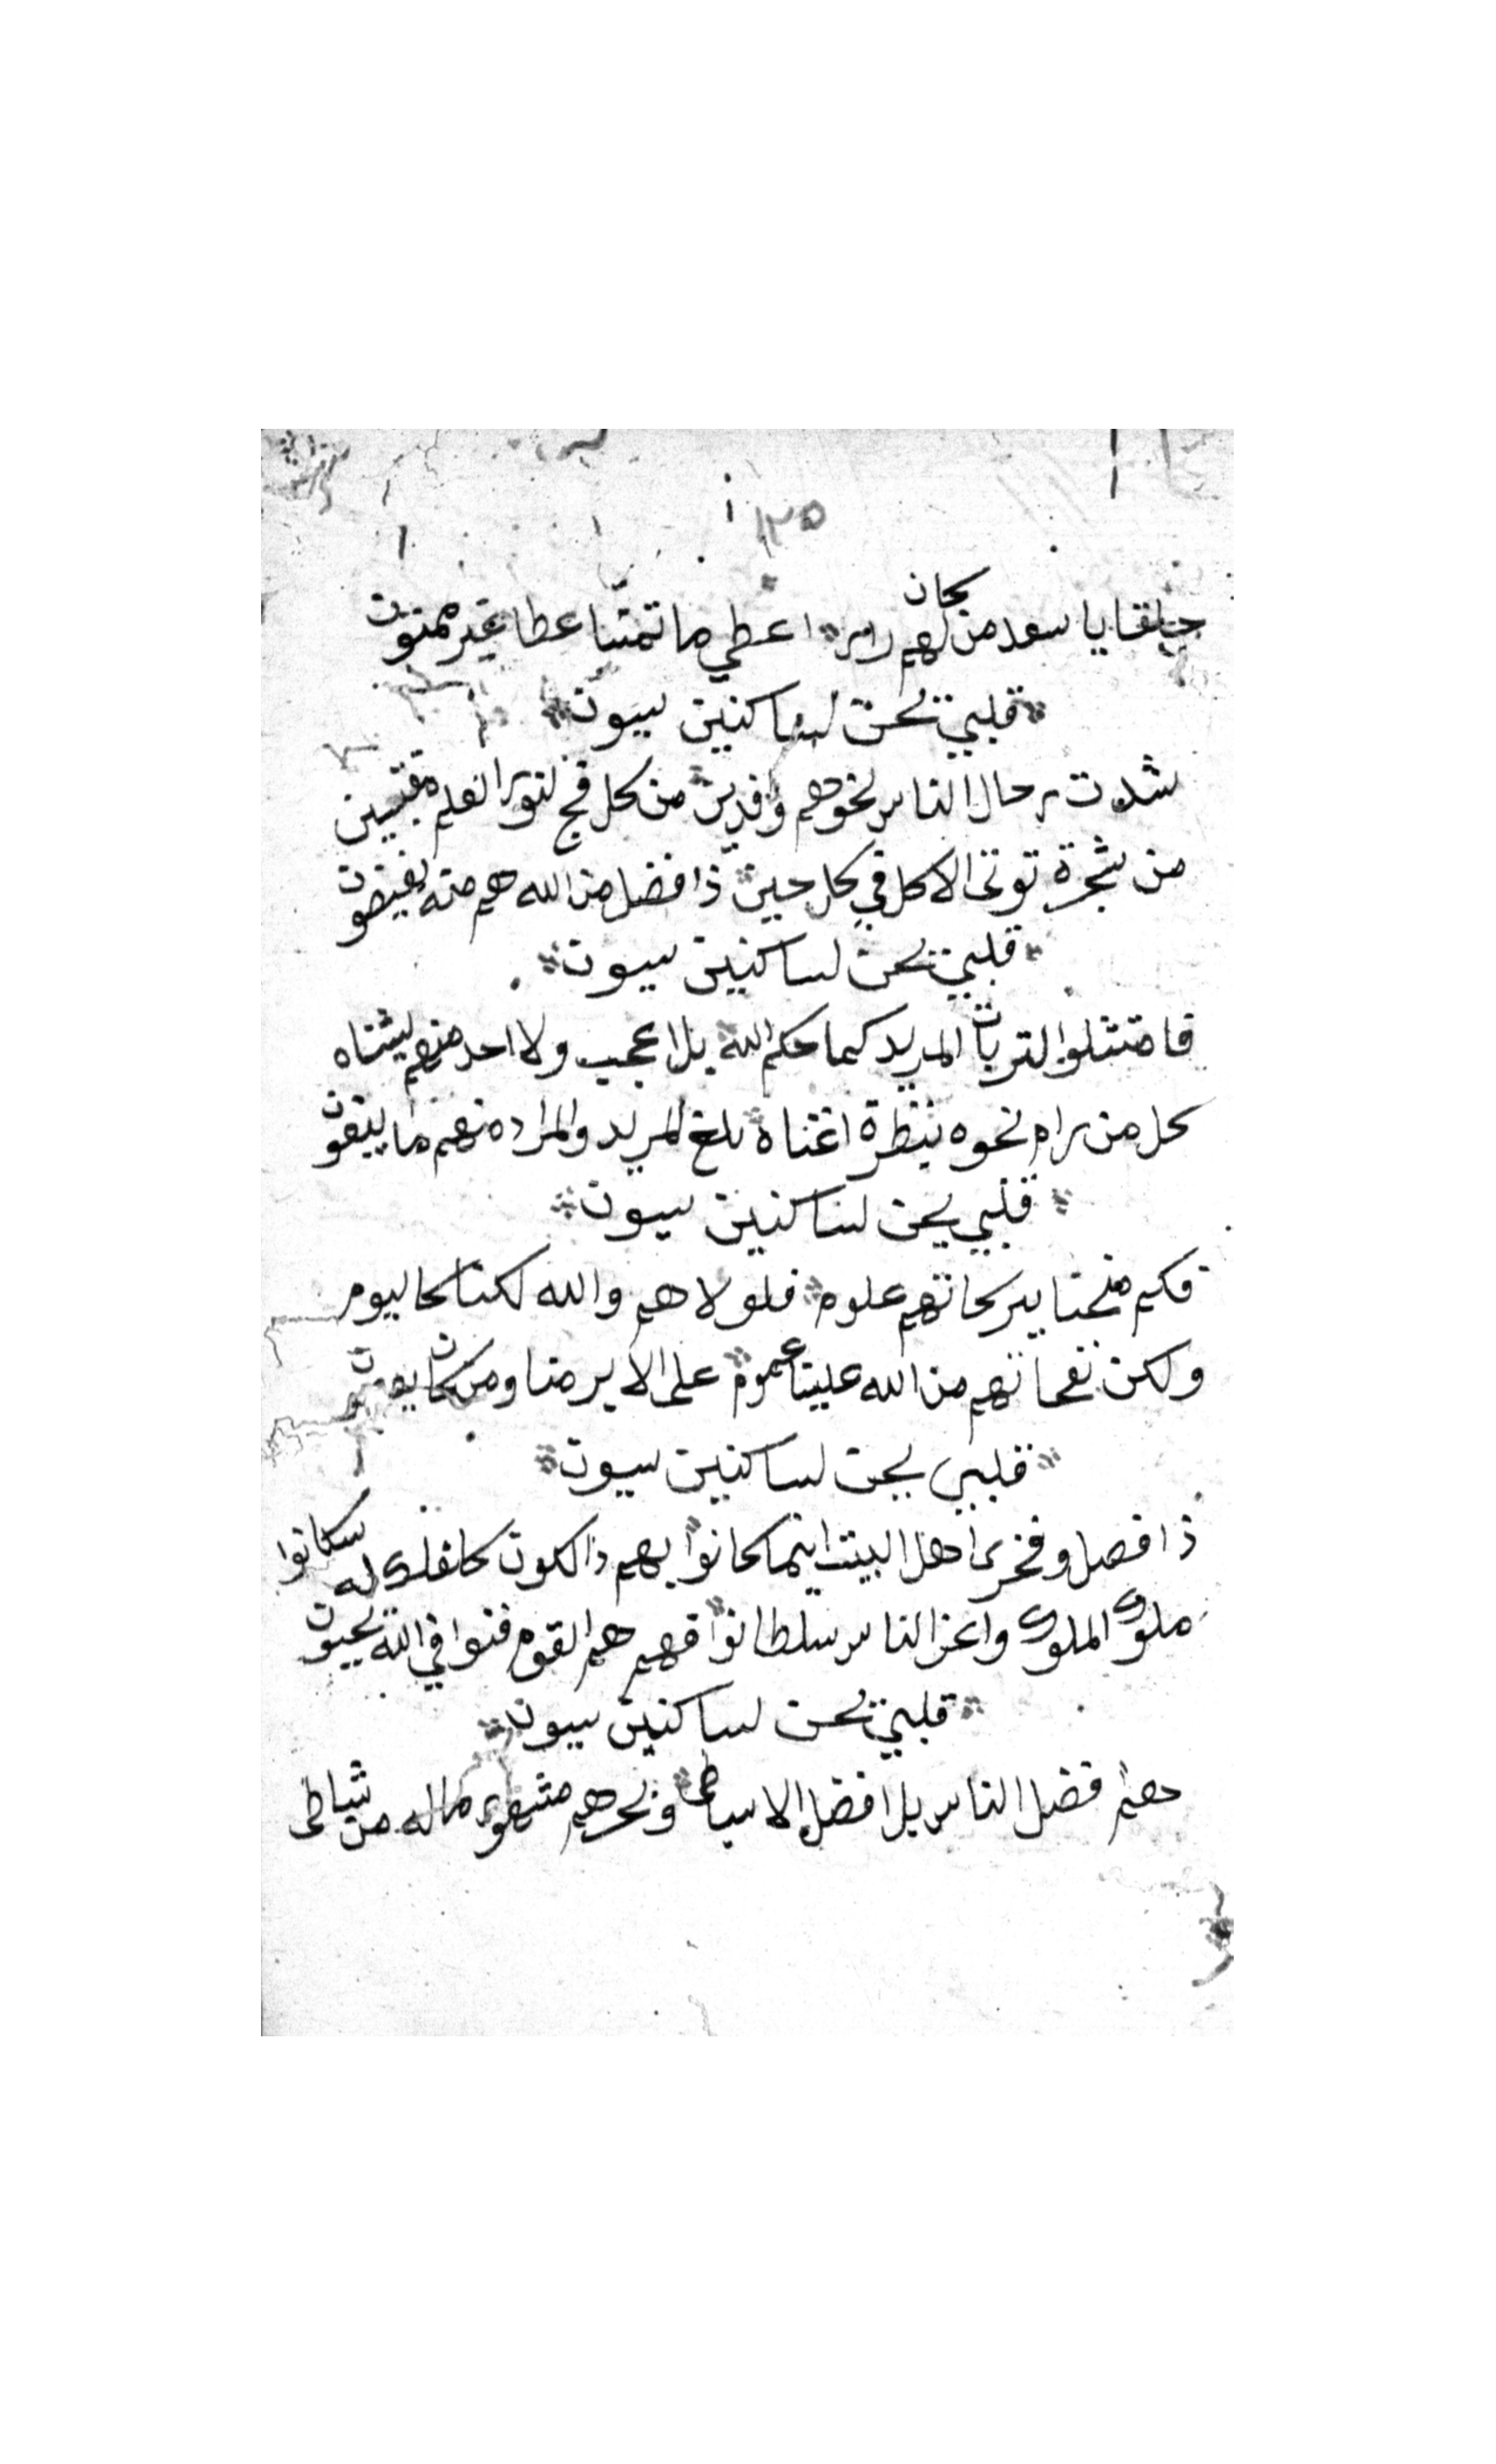 ١٢٥
يا سعد من كان لهم زاير اعطي ما تمنّا عطا غير ممنون
قلبي يحن لساكنين سيون
شدت رحال الناس نحوهم وافدين من كل فج لنور العلم مقتبسين
من شجرة توتى الاكل في كل حين ذا فضل من الله هم منه يفيضون
قلبي يحن لساكنين سيون
فامتثلوا لتربات المريد كما حكم الله بلا عجب ولا احد منهم يشناه
كل من رام نحوه بنظرة اغناه بلغ المريد والمراد منهم ما يبغون
قلبي يحن لساكنين سيون
فكم منحنا ببركاتهم علوم فلولا هم والله لكنا كاليوم
ولكن نفحاتهم من الله علينا عموم على الابر منا ومن كان
قلبي يحن لساكنين سيون
ذا فضل وفخر اهل البيت اينما كانوا بهم ذا الكون كالفلك له سكانوا
ملوك الملوك واعز الناس سلطانوا فهم هم القوم فنوا في الله يحيون
قلبي يحن لساكنين سيون
هم فضل الناس بل افضل الاسباط وبحرهم مشهور ماله من شاطى